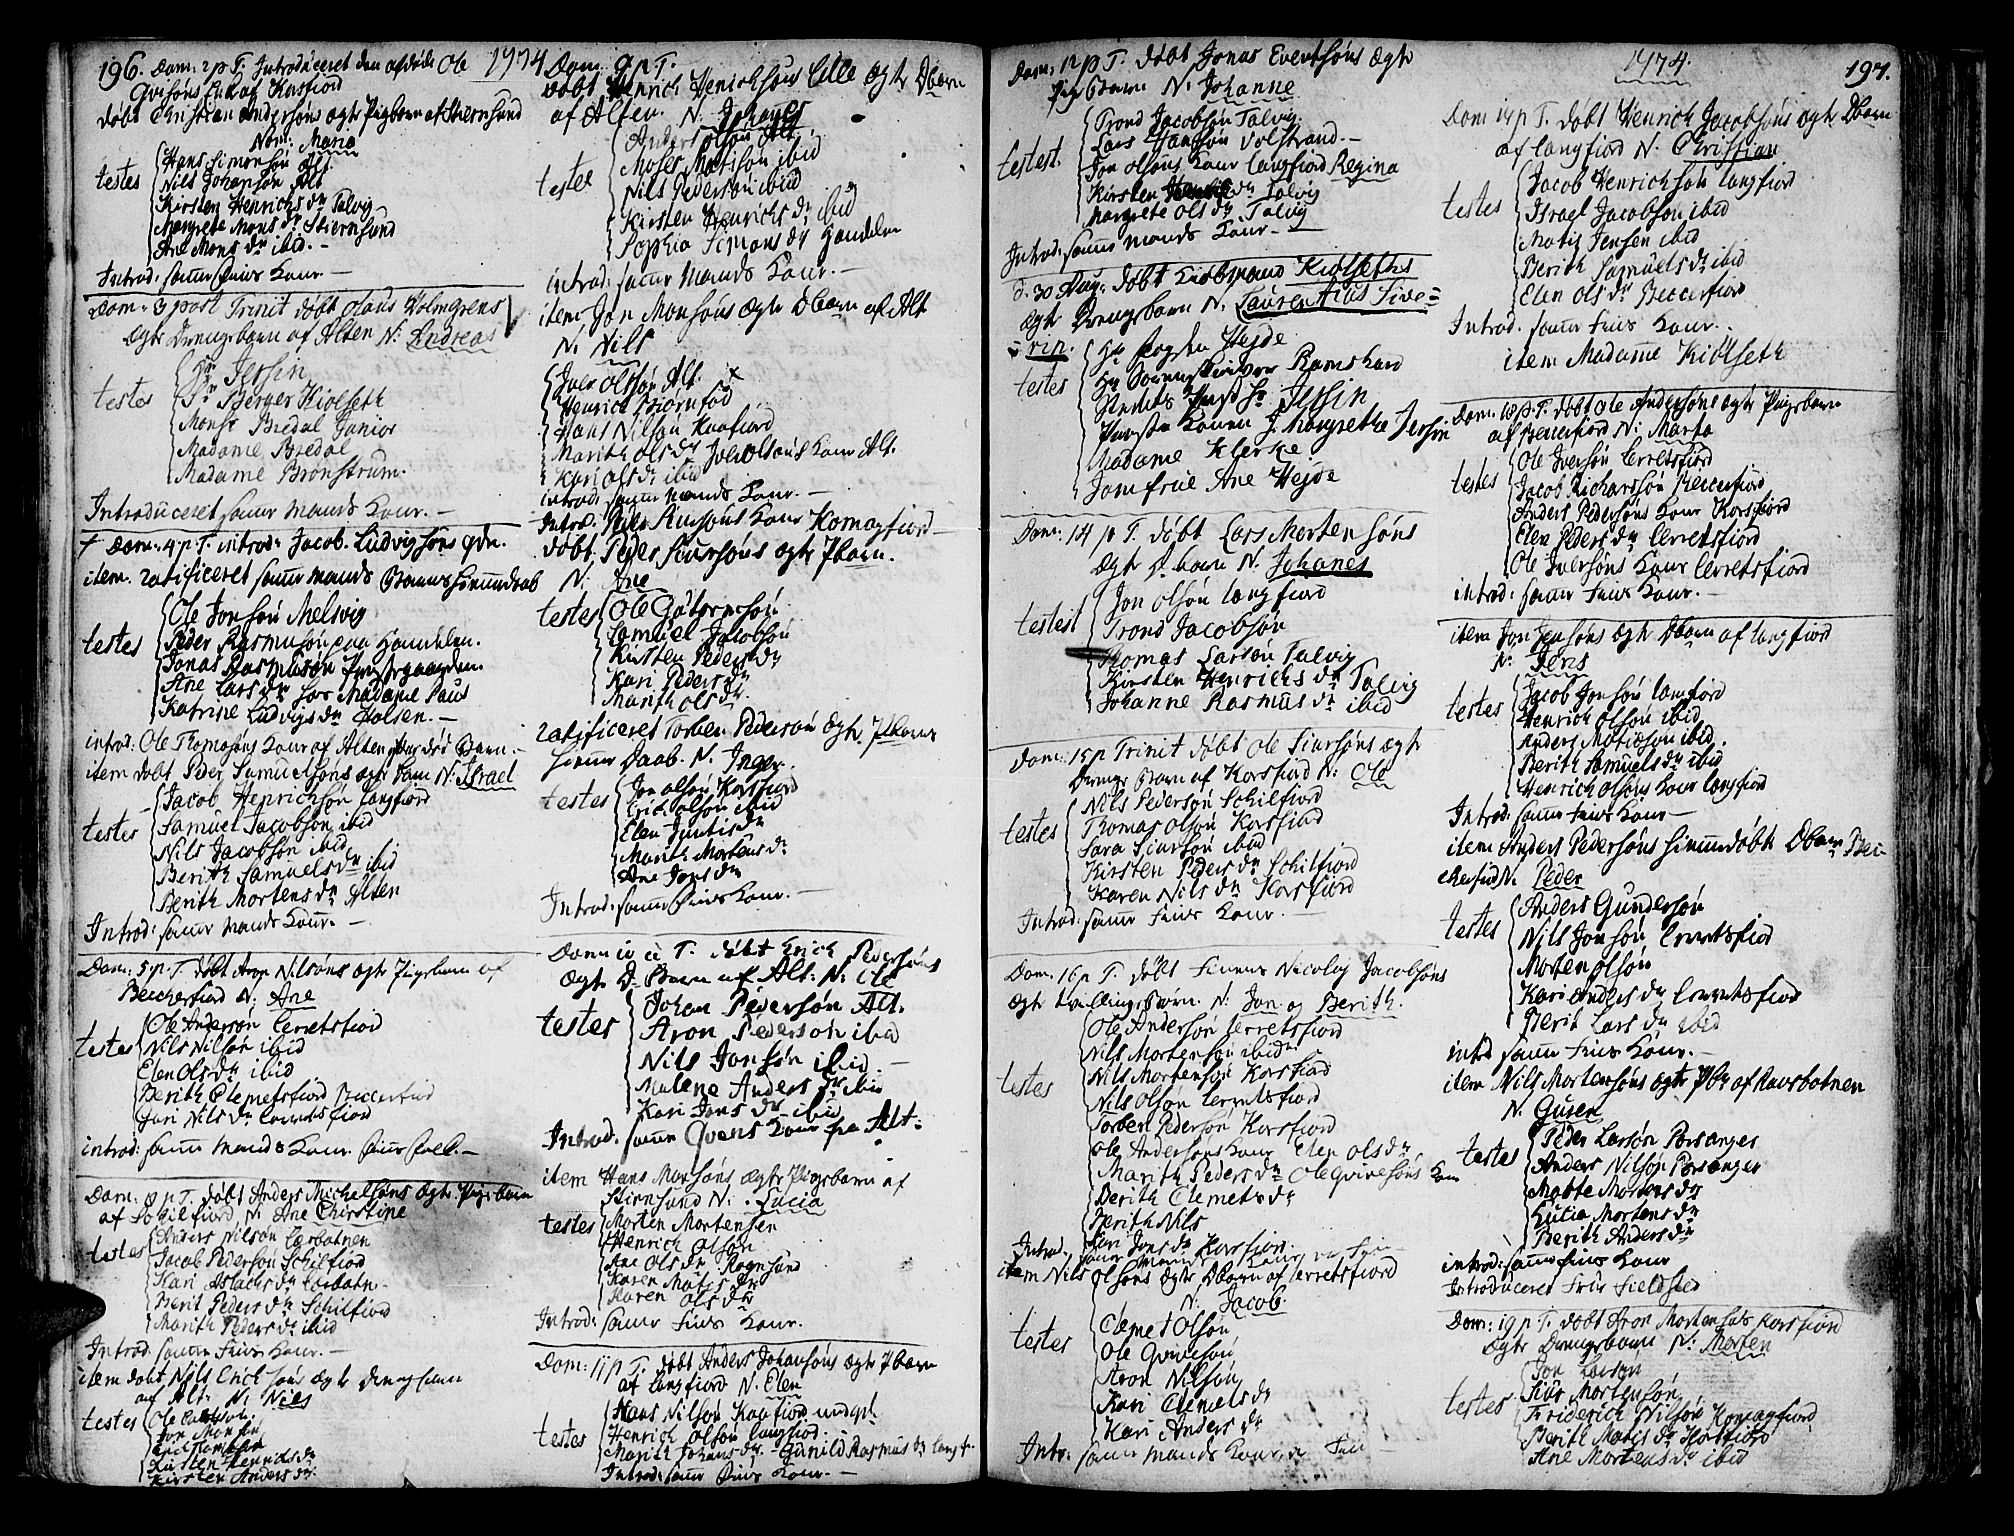 196. Dom: 2 p T. Introduceret den afdøde Ole 1774
Korsfiord
døbt Christian Andersøns ægte Pigebarn af Stiernsund
Nom: Maria
testes
Hans Simonsøn Alt.
Nils Johansøn Alt
Kirsten Henrichs dr Talvig
Margrete Mons dr Stiernsund
Ane Mons dr ibid. -
Introd: samme Finns Kone. -
Dom: 3 post Trinit døbt Olaus Holmgrens
ægte Drengebarn af Alten N: Andreas
testes
Hr Jessin
Sr Berger Kiølseth
Monsr Bredal Junior
Madame Bredal
Madame Bronstrum.
Introduceret samme Mands Kone. -
Dom: 4 p T. introd: Jacob Ludvigsøns qde.
item ratificeret samme Mands Barns Hiemmedaab
testes
Ole Jonsøn Melsvig
Peder Rasmusøn paa Handelen.
Jonas Rasmusøn Præstegaarden.
Ane Lars dr hos Madame Paus
Katrine Ludvigs dr Holsen. -
introd: Ole Thomasøns Kone af Alten
item døbt Peder Samuelsøns ægte barn N: Israel
testes
Jacob Henrichsøn langfiord
Samuel Jacobsøn ibid
Nils Jacobsøn ibid
Berith Samuels dr ibid
Berith Mortens dr Alten
Introd: samme Mands Kone. -
Dom: 5 p T. døbt Aron Nilsøns ægte Pigebarn af
Beccherfiord N: Ane
testes
Ole Andersøn lerretsfiord
Nils Nilsøn ibid
Elen Ols dr ibid
Berith Clemetsfiord Beccerfiord
Gari Nils dr lerretsfiord
introd: samme Mands Kone
Dom: 8 p T. døbt Anders Michelsøns ægte Pigebarn
af Schilfiord N: Ane Christine
testes
Anders Nilsøn lerbotnen
Jacob Pedersøn Schilfiord
Kari Aslachs dr lerbotn.
Berit Peders dr Schilfiord
Marith Peders dr ibid
Introd: samme Finns Kone. -
item døbt Nils Erichsøns ægte Drengebarn
af Alt: N: Nils
testes
Jon Monsen
Kirsten Henrichs dr
Kirsten Anders dr.
Dom 9 p T.
døbt Henrich Henrichsøns Lille ægte Dbarn
af Alten. N. Johannes
testes
Anders Olsøn Alt.
Moses Matisøn ibid
Nils Pedersøn ibid
Kirsten Henrichs dr ibid
Sophia Simons dr Handelen
introd: samme Mands Kone. -
item Jon Monsøns ægte Dbarn af Alt
N. Nils
Iver Olsøn Alt.
Henrich Biørnfod
Hans Nilsøn Kaafiord
Marith Ols dr Iver Olsøns Kone Alt.
Kari Ols dr ibid
introd: samme Mands Kone. -
Introd. Peder Siursøns Kone Komagfiord
døbt Peder Siursøns ægte Pbarn.
N: Ane
testes
Ole Guttormsøn
Samuel Jacobsøn
Kirsten Peders dr
Kari Peders dr
Marith Ols dr.
ratificeret Torben Pedersøn ægte Pbarns
hiemme Daab. N. Inger.
testes
Jon Olsøn Korsfiord
Erich Olsøn ibid
Elen
Marith Mortens dr
Ane Jons dr
Introd: samme Finns Kone. -
Dom 10 p T. døbt Erich Pedersøns
ægte D. Barn af Alt. N: Ole
testes
Johan Pedersøn Alt.
Aron Pedersøn ibid
Nils Jonsøn ibid. -
Malene Anders dr ibid
Kari Jons dr ibid
Introd. samme Qvens Kone fra Alt.
item Hans Monsøns ægte Pigebarn af
Stiernsund N: Lucia
testes
Morten Mortensen
Henrich Olsøn
Ane Ols dr Rognsund
Karen Matis dr
Karen Ols dr
Introd: samme Finns Kone.
Dom: 11 p T. døbt Anders Johansøns ægte Pbarn
af langfiord N. Elen
testes
Hans Nilsøn Kaafiord
Henrich Olsøn langfiord.
Marith Johans dr - Gunild Rasmus dr langf.
Introd: samme Finns Kone. -
Dom: 12 p T. døbt Jonas Evertsøns ægte
Pigebarn N. Johanne
testes
Trond Jacobsøn Talvig.
Lars Hansøn Volstrand. -
Jon Olsøns Kone langfiord Regina
Kirsten dr Talvig
Margrete Ols dr Talvig
Introd: samme Mands Kone. -
d. 30 Aug: døbt Kiøbmand Kiølseths
ægte Drengebarn N: Laurentius Seve=
=rin.
testes
Hr Fogden Hejde
Hr Sorenskriver Ramshard
Præst Hr Jessin
Præstekonen J. Margrethe Jessin
Madame Klerke
Jomfrue Ane Hejde
Dom: 14 p T. døbt Lars Mortensøns
ægte D barn N. Johanes
testes
Jon Olsøn langfiord
Trond Jacobsøn
Thomas Larsøn Talvig
Kirsten Henrichs dr Talvig
Johanne Rasmus dr ibid
Dom: 15 p Trinit døbt Ole Siursøns ægte
Drenge Barn af Korsfiord N: Ole
testes
Nils Pedersøn Schilfiord
Thomas Olsøn Korsfiord
Sara Siursøn ibid
Kirsten Peders dr Schilfiord
Karen Nils dr Korsfiord
Introd: samme Finns Kone. -
Dom: 16 p T. døbt Finnens Nicolaj Jacobsøns
ægte tvillingebørn. N: Jon og Berith.
testes
Ole Andersøn lerretsfiord
Nils Mortensøn ibid
Nils Mortensøn Korsfiord
Nils Olsøn lerretsfiord
Torben Pedersøn Korsfiord
Ole Andersøns Kone Elen Ols dr
Marith Peders dr Ole Qvivesøns Kone
Berith Clemets dr
Berith Nils
Kari Jons dr Korsfiord.
Introd. samme
item Nils Olsøns ægte Dbarn af lerretsfiord
N: Jacob.
testes
Clemet Olsøn
Ole Qvivesøn
Aron Nilsøn
Kari Clemets dr
Kari Anders dr
Intr: samme Mands Kone
1774. 197.
Dom 17 p T. døbt Henrich Jacobsøns ægte Dbarn
af langfiord N: Christian
testes
Jacob Henrichsøn langfiord
Israel Jacobsøn ibid
Matis Jensen ibid
Berith Samuels dr ibid
Elen Ols dr Beccerfiord
Introd. samme Finns Kone.
item Madame Kiølseth
Dom: 18 p T. døbt Ole Andersøns ægte Pigebarn
af Beccerfiord N: Marta
testes
Ole Iversøn lerretsfiord
Jacob Richarsøn Beccerfiord
Anders Pedersøns Kone Korsfiord
Elen Peders dr lerretsfiord
Ole Iversøns Kone lerretsfiord
introd: samme Finns Kone. -
item Jon Jensøns ægte Dbarn af langfiord
N: Jens
testes
Jacob Jonsøn langfiord
Henrich Olsøn ibid
Anders Matiesøn ibid.
Berith Samuels dr ibid
Henrich Olsøns Kone langfiord
Introd: samme Finns Kone -
item Anders Pedersøns hiemmedøbt Dbarn Bec-
cherfiord N: Peder
testes
Anders Gundersøn
Nils Jonsøn lerretsfiord
Morten Olsøn
Kari Anders dr lerretsfiord
Berit Lars dr ibid
introd samme Finns Kone. -
item Nils Mortensøns ægte Pbr af Ravsbotnen
N. Guren
testes
Peder Larsøn Porsanger
Anders Nilsøn Porsanger
Matte Mortens dr
Lucia Mortens dr
Berith Anders dr
introd: samme Finns Kone
Introduceret Frue Fieldsted
Dom: 19 p T. døbt Aron Mortensøns Korsfiord
ægte Drengebarn N: Morten
testes
Jon Larsen
Siur Mortensøn
Friderich Nilsøn Komagfiord
Berith Matis dr Korsfiord
Ane Mortens dr ibid